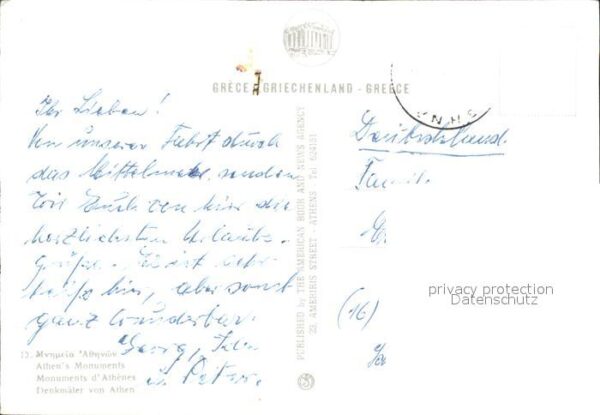 GRÈCE - GRIECHENLAND - GREECE
Ihr Lieben!
Von unserer Fahrt durch
das Mittelmeer senden
wir Euch von hier die
herzlichsten Urlaubs-
grüße. Es ist sehr
heiß hier, aber sonst
ganz wunderbar.
Georg,
u. Peter.
13. Μνημεῖα Ἀθηνῶν
Athen's Monuments
Monuments d'Athènes
Denkmäler von Athen
PUBLISHED by THE AMERICAN BOOK AND NEWS AGENCY
23, AMERIKIS STREET - ATHENS Tel 624151
Deutschland.
Famil.
(16)
privacy protection
Datenschutz